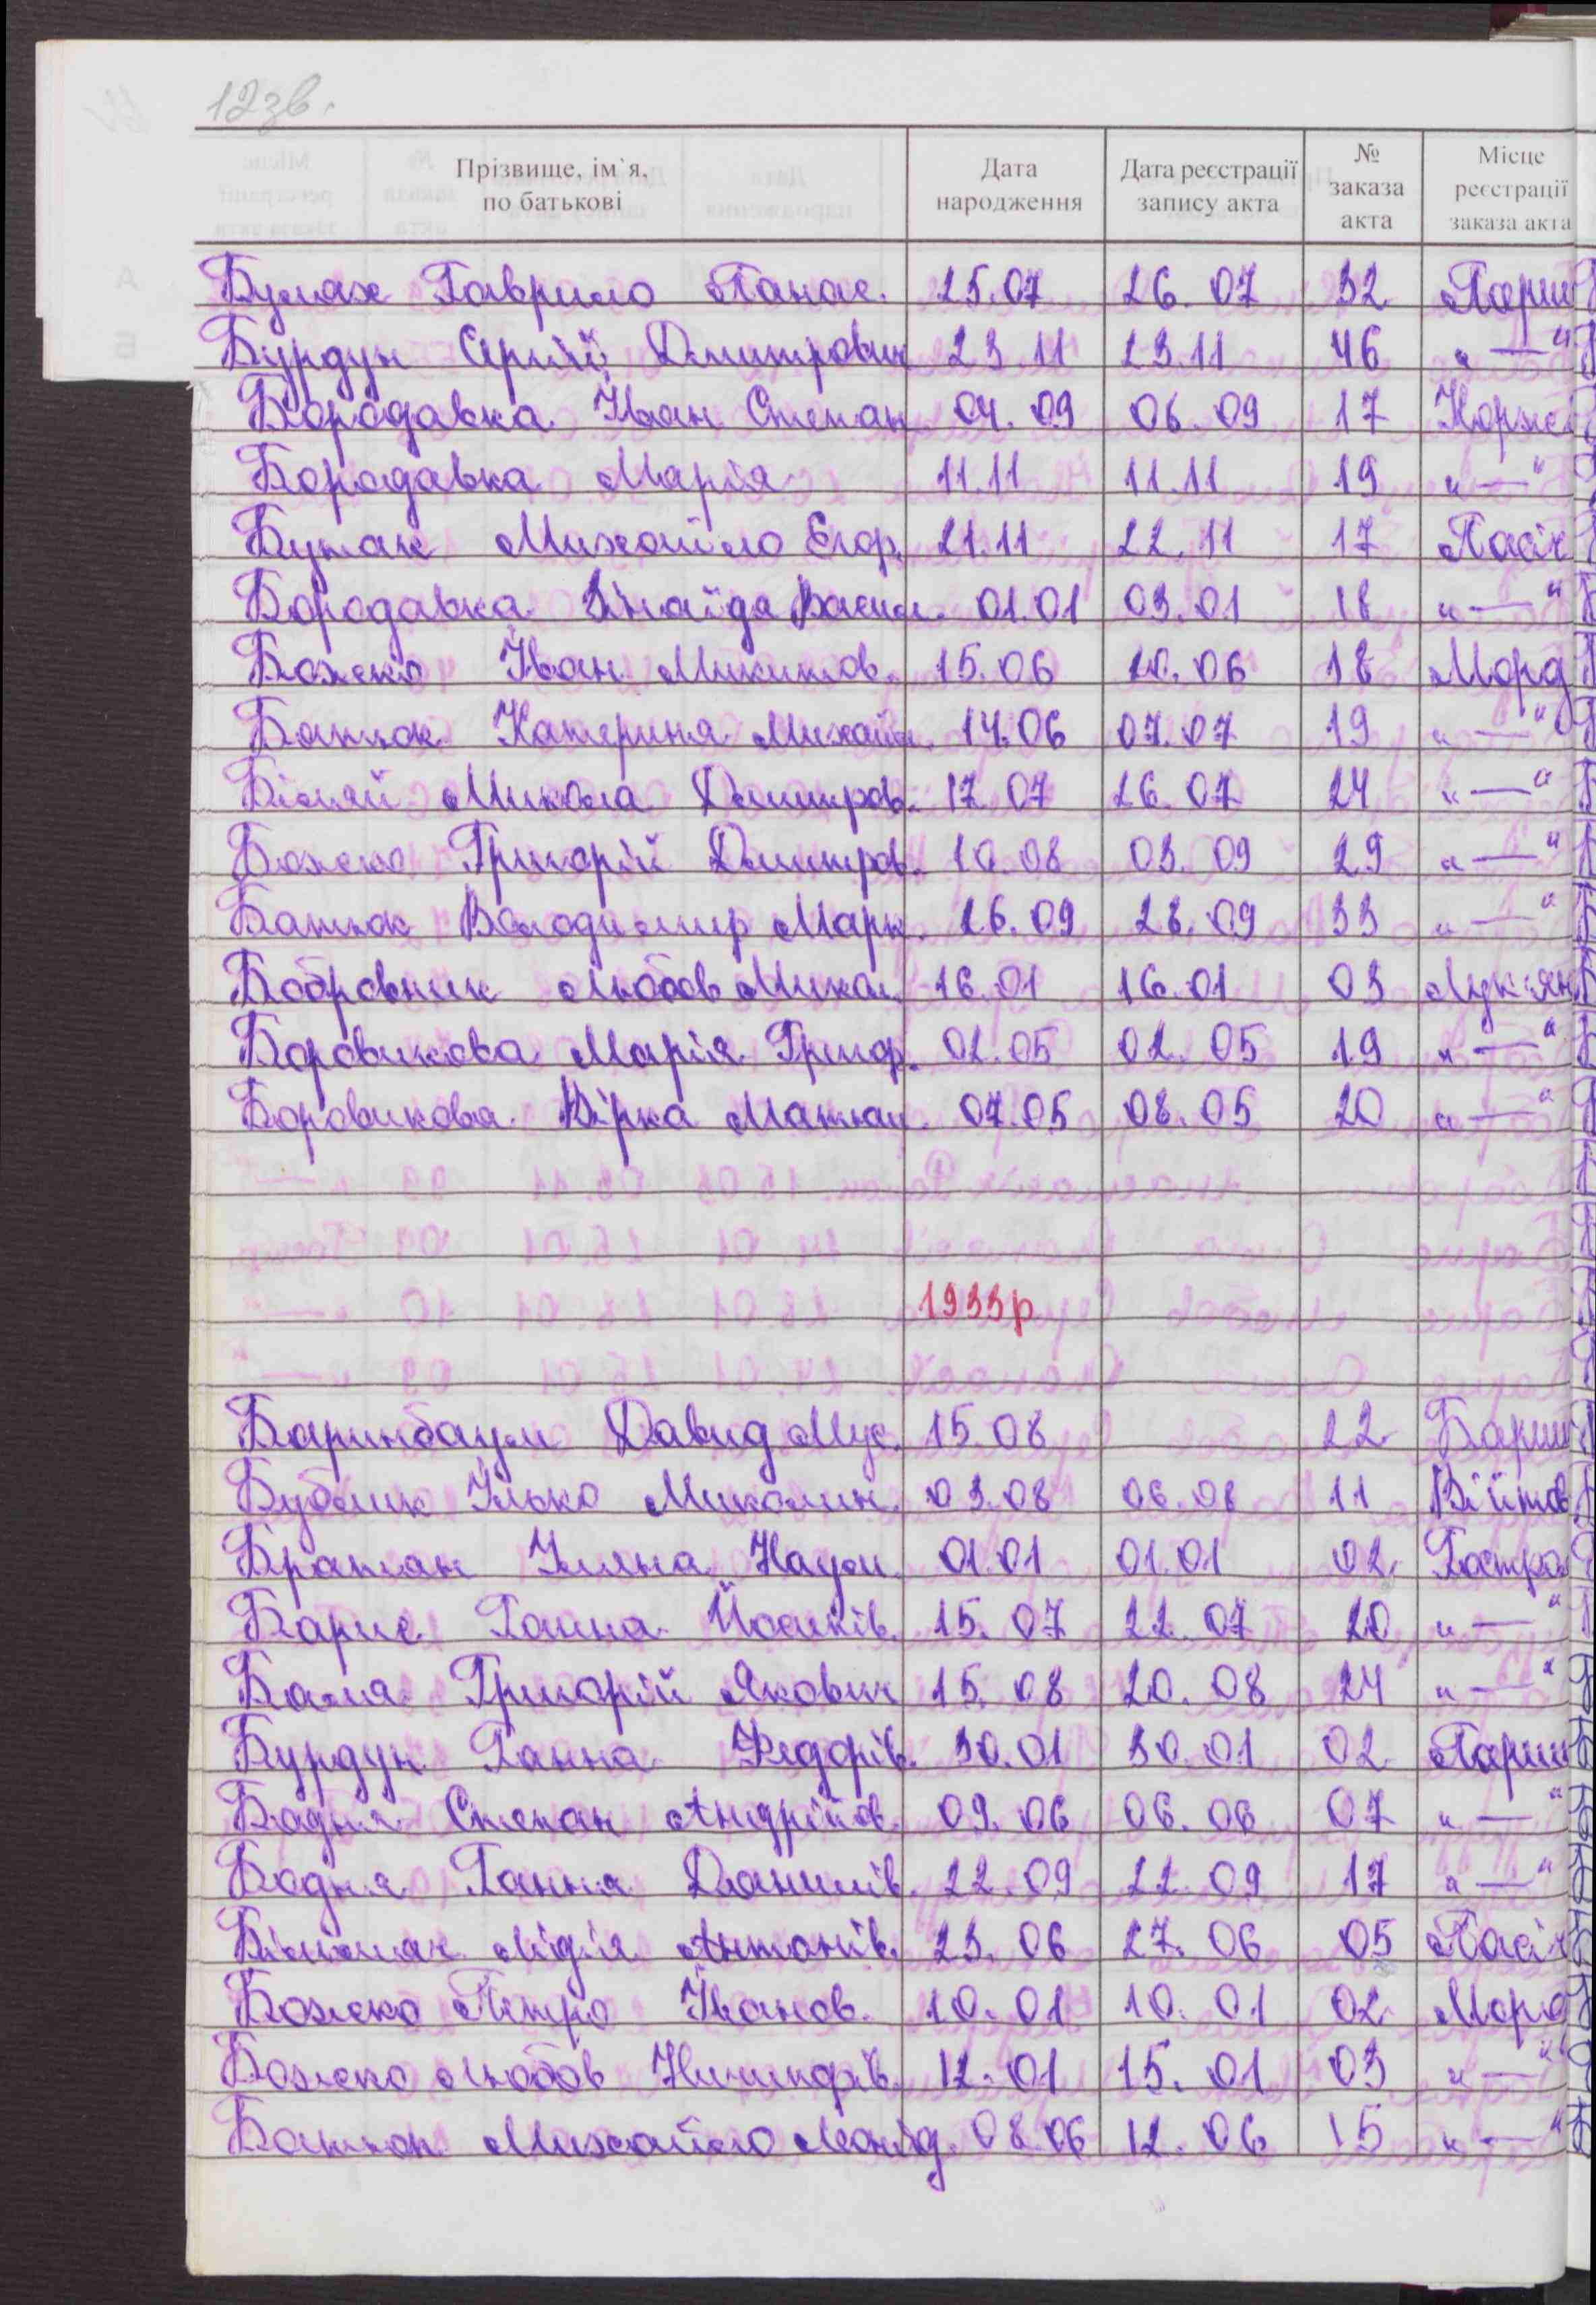 12зв.
Прізвище, ім`я, по батькові | Дата народження | Дата реєстрації запису акта | № заказа акта | Місце реєстрації заказа акта
Буляк Гаврило Панас. 25.07 26.07 32 Париш
Бурдун Сергій Дмитрович 23.11 23.11 46 "—"
Бородавка Іван Степан 04.09 06.09 17 Корже
Бородавка Марія 11.11 11.11 19 "—"
Бутак Михайло Егор. 21.11 22.11 17 Пасіч
Бородавка Зінаїда Васил. 01.01 03.01 18 "—"
Божко Іван Микитов. 15.06 20.06 18 Морд
Батюк Катерина Михайл. 14.06 07.07 19 "—"
Біляй Микола Дмитров. 17.07 26.07 24 "—"
Божко Григорій Дмитров. 10.08 03.09 29 "—"
Батюк Володимир Марк. 26.09 28.09 33 "—"
Бобровник Любов Микол. 16.01 16.01 03 Лук'ян
Боровикова Марія Григор. 02.05 02.05 19 "—"
Боровикова Вірка Матвій. 07.05 08.05 20 "—"
1933р
Баринбаум Давид Мус. 15.08 22 Бариш
Бублик Ілько Миколин. 03.08 06.08 11 Війтов
Братан Уляна Наум. 01.01 01.01 02 Гостро
Барис Ганна Йосипів. 15.07 22.07 20 "—"
Баля Григорій Якович 15.08 20.08 24 "—"
Бурдун Ганна Федорів. 30.01 30.01 02 Париш
Бодня Степан Андрійов. 09.06 06.06 07 "—"
Бодня Ганна Данилів. 22.09 22.09 17 "—"
Лідія Антонів. 23.06 27.06 05 Пасіч
Божко Петро Іванов. 10.01 10.01 02 Морд
Божко Любов Никифрів. 12.01 15.01 03 "—"
Батюк Михайло Леонід. 08.06 12.06 15 "—"